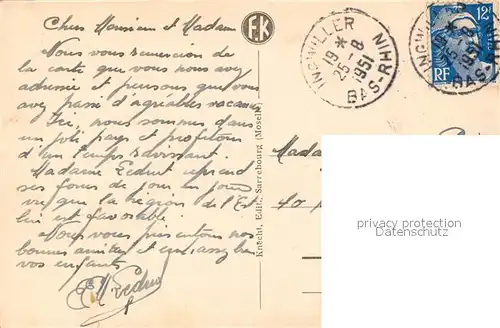 Chers Monsieur et Madame
Nous vous remercions de
la carte que vous nous avez
adressée et pensons que vous
avez passé d'agréables vacances
Ici, nous sommes dans
un joli pays et profitons
d'un temps ravissant.
Madame Leduc reprend
ses forces de jour en jour
vu que la région de l'Est
lui est favorable.
Nous vous présentons nos
bonnes amitiés et embrassez
vos enfants
Leduc
FK
Knecht, Edit., Sarrebourg (Moselle)
INGWILLER
19 *
25 - 8
1951
BAS-RHIN
INGWILLER
1951
BAS-RHIN
12F
RF
Mada
40
privacy protection
Datenschutz